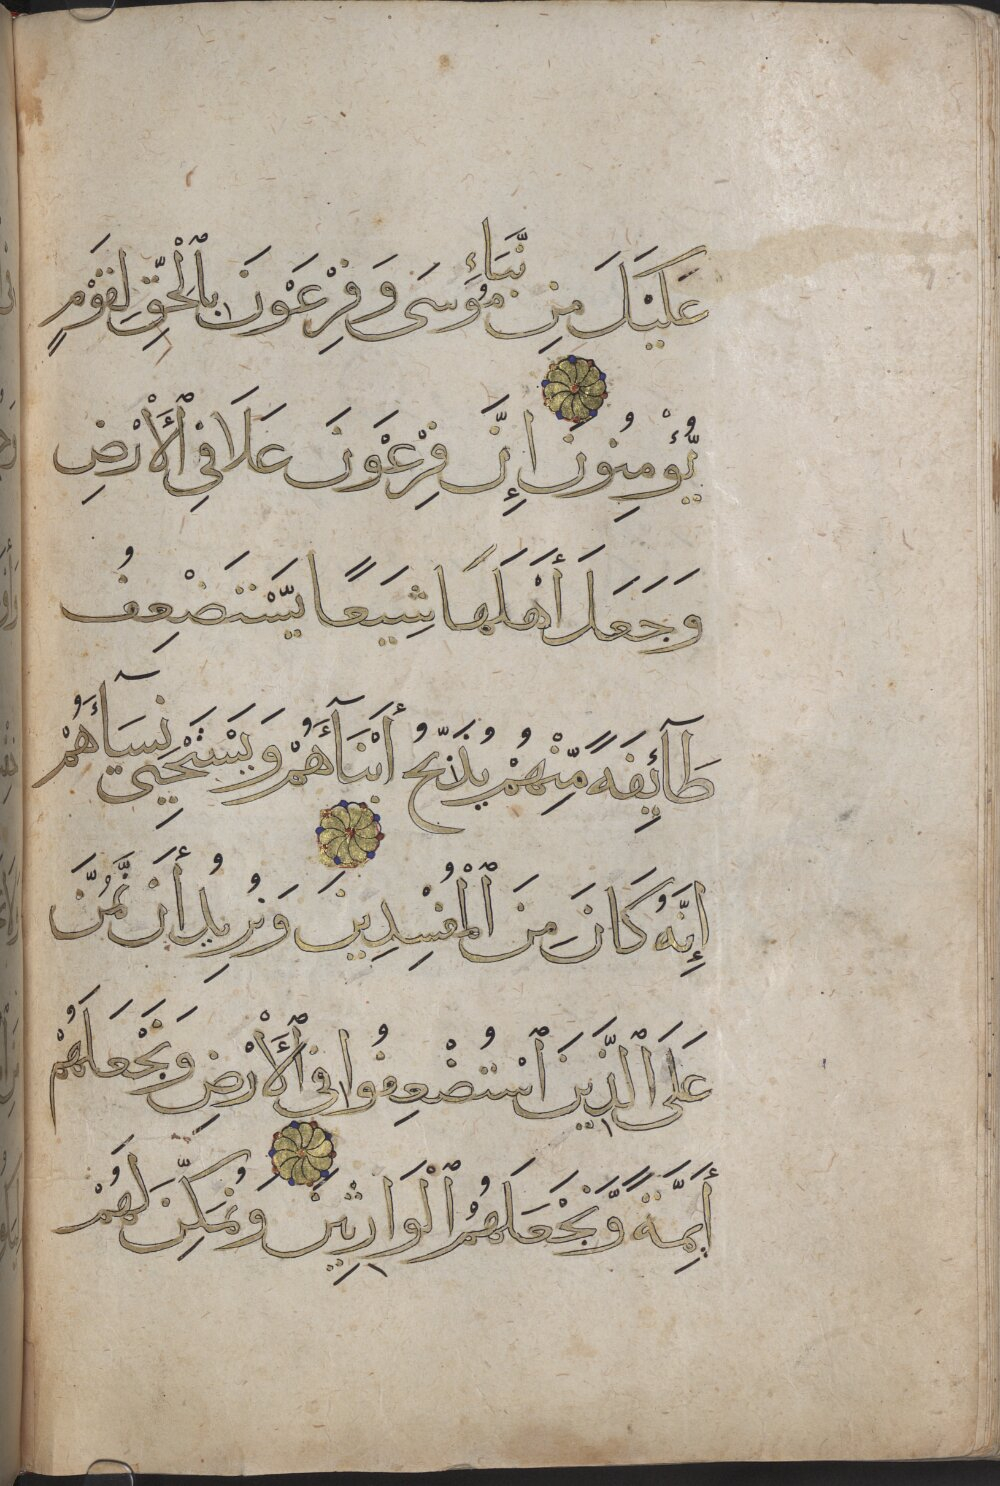 عَلَيْكَ مِن نَّبَاءِ مُوسَى وَفِرْعَوْنَ بِالْحَقِّ لِقَوْمٍ
يُّؤْمِنُونَ إِنَّ فِرْعَوْنَ عَلَا فِي ٱلْأَرْضِ
وَجَعَلَ أَهْلَهَا شِيَعًا يَّسْتَضْعِفُ
طَآئِفَةً مِّنْهُمْ يُذَبِّحُ أَبْنَآءَهُمْ وَيَسْتَحْيِي نِسَآءَهُمْ
إِنَّهُ كَانَ مِنَ ٱلْمُفْسِدِينَ وَنُرِيدُ أَن نَّمُنَّ
عَلَى ٱلَّذِينَ ٱسْتُضْعِفُوا فِي ٱلْأَرْضِ وَنَجْعَلَهُمْ
أَيِمَّةً وَّنَجْعَلَهُمُ ٱلْوَارِثِينَ وَنُمَكِّنَ لَهُمْ